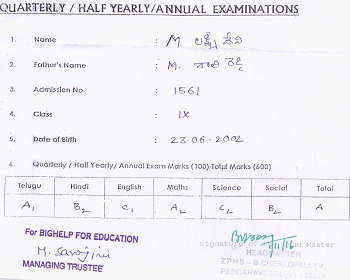 QUARTERLY / HALF YEARLY/ANNUAL EXAMINATIONS
1. Name : M. లక్ష్మీ దేవి
2. Father's Name : M.
3. Admission No. : 1561
4. Class : IX
5. Date of Birth : 23-06-2002
6. Quarterly / Half Yearly/ Annual Exam Marks (100) Total Marks (600)
Telugu Hindi English Maths Science Social Total
A1 B2 C1 A2 C2 B2 A
For BIGHELP FOR EDUCATION
M. Sarojini
MANAGING TRUSTEE
Signature of Head Master
HEADMASTER
ZPHS -